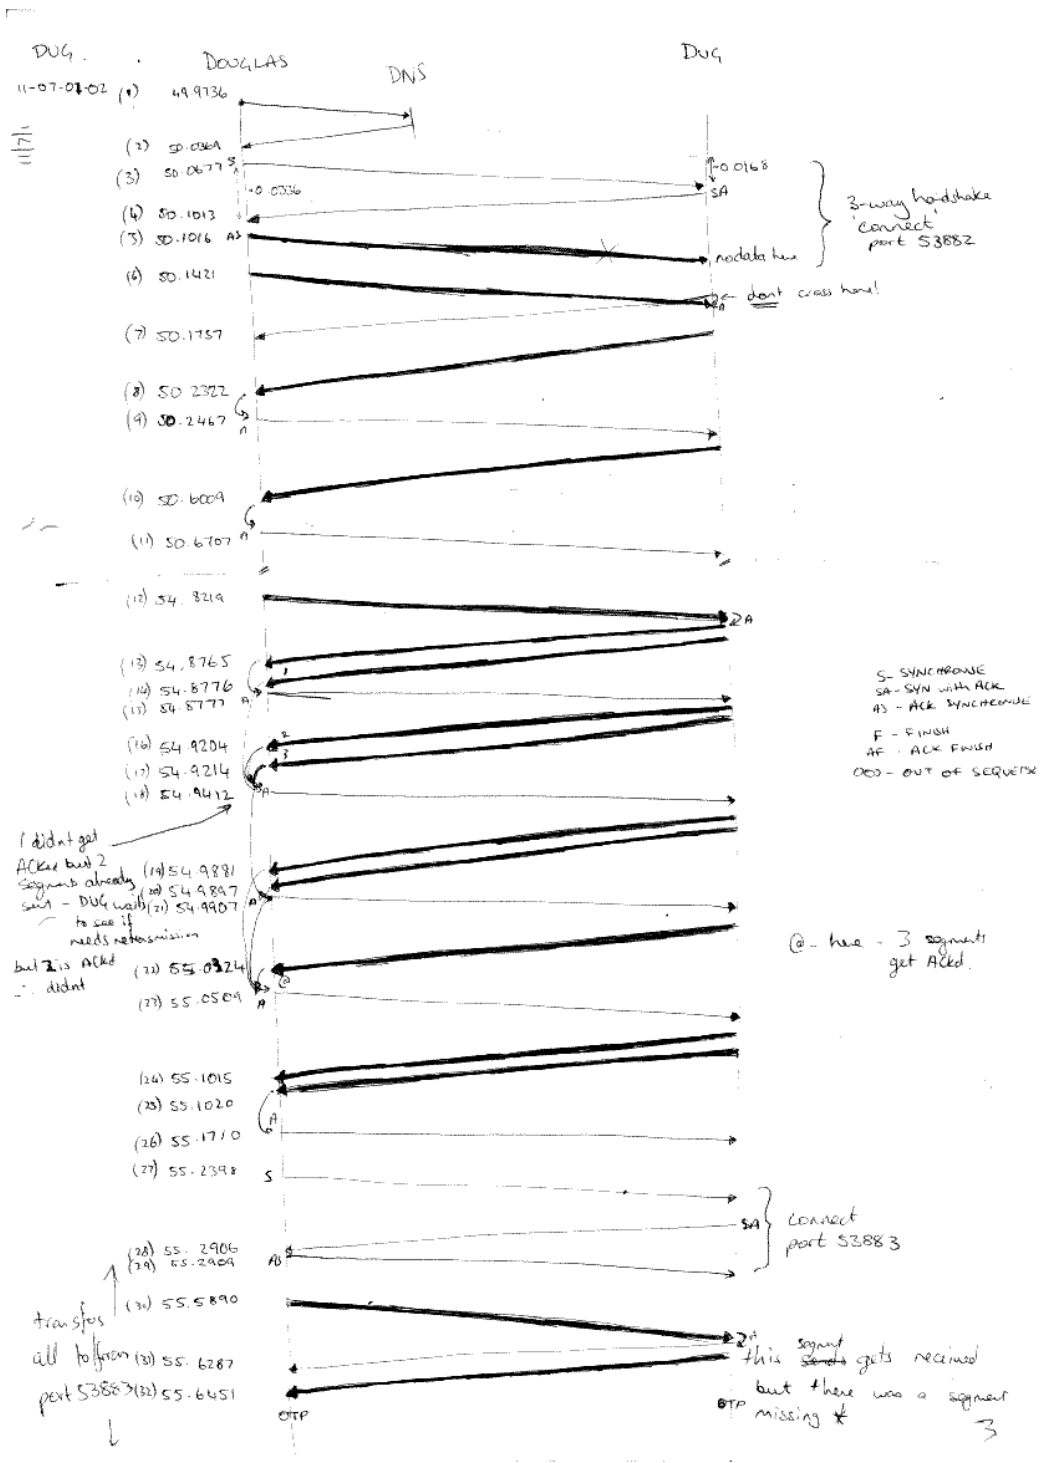 DUG. DOUGLAS DNS DUG
11-07-01-02 (1) 49.9736
(2) 50.0369
(3) 50.0677 S
~0.0168
SA
~0.0336
(4) 50.1013
3-way handshake
'connect'
port 53882
(5) 50.1016 AS
no data here
(6) 50.1421
← dont cross here!
A
(7) 50.1757
(8) 50.2322
(9) 50.2467 A
(10) 50.6009
(11) 50.6707 A
(12) 54.8219
A
(13) 54.8765
1
(14) 54.8776
(15) 54.8777 A
S - SYNCHRONISE
SA - SYN with ACK
AS - ACK SYNCHRONISE
F - FINISH
AF - ACK FINISH
OOS - OUT OF SEQUENCE
(16) 54.9204 2
(17) 54.9214 3
(18) 54.9412 A
1 didnt get
ACKed but 2
segments already
sent - DUG waits
to see if
needs retransmission
but 2 is ACKd
∴ didnt
(19) 54.9881
(20) 54.9897
(21) 54.9907 A
(22) 55.0324
@
@ - here - 3 segments
get ACKd.
(23) 55.0509 A
(24) 55.1015
(25) 55.1020
A
(26) 55.1710
(27) 55.2398 S
SA
connect
port 53883
(28) 55.2906
(29) 55.2909 AS
(30) 55.5890
transfers
all to/from
port 53883
(31) 55.6287
A
(32) 55.6451
segment
this sends gets received
but there was a segment
missing *
OTP OTP
3